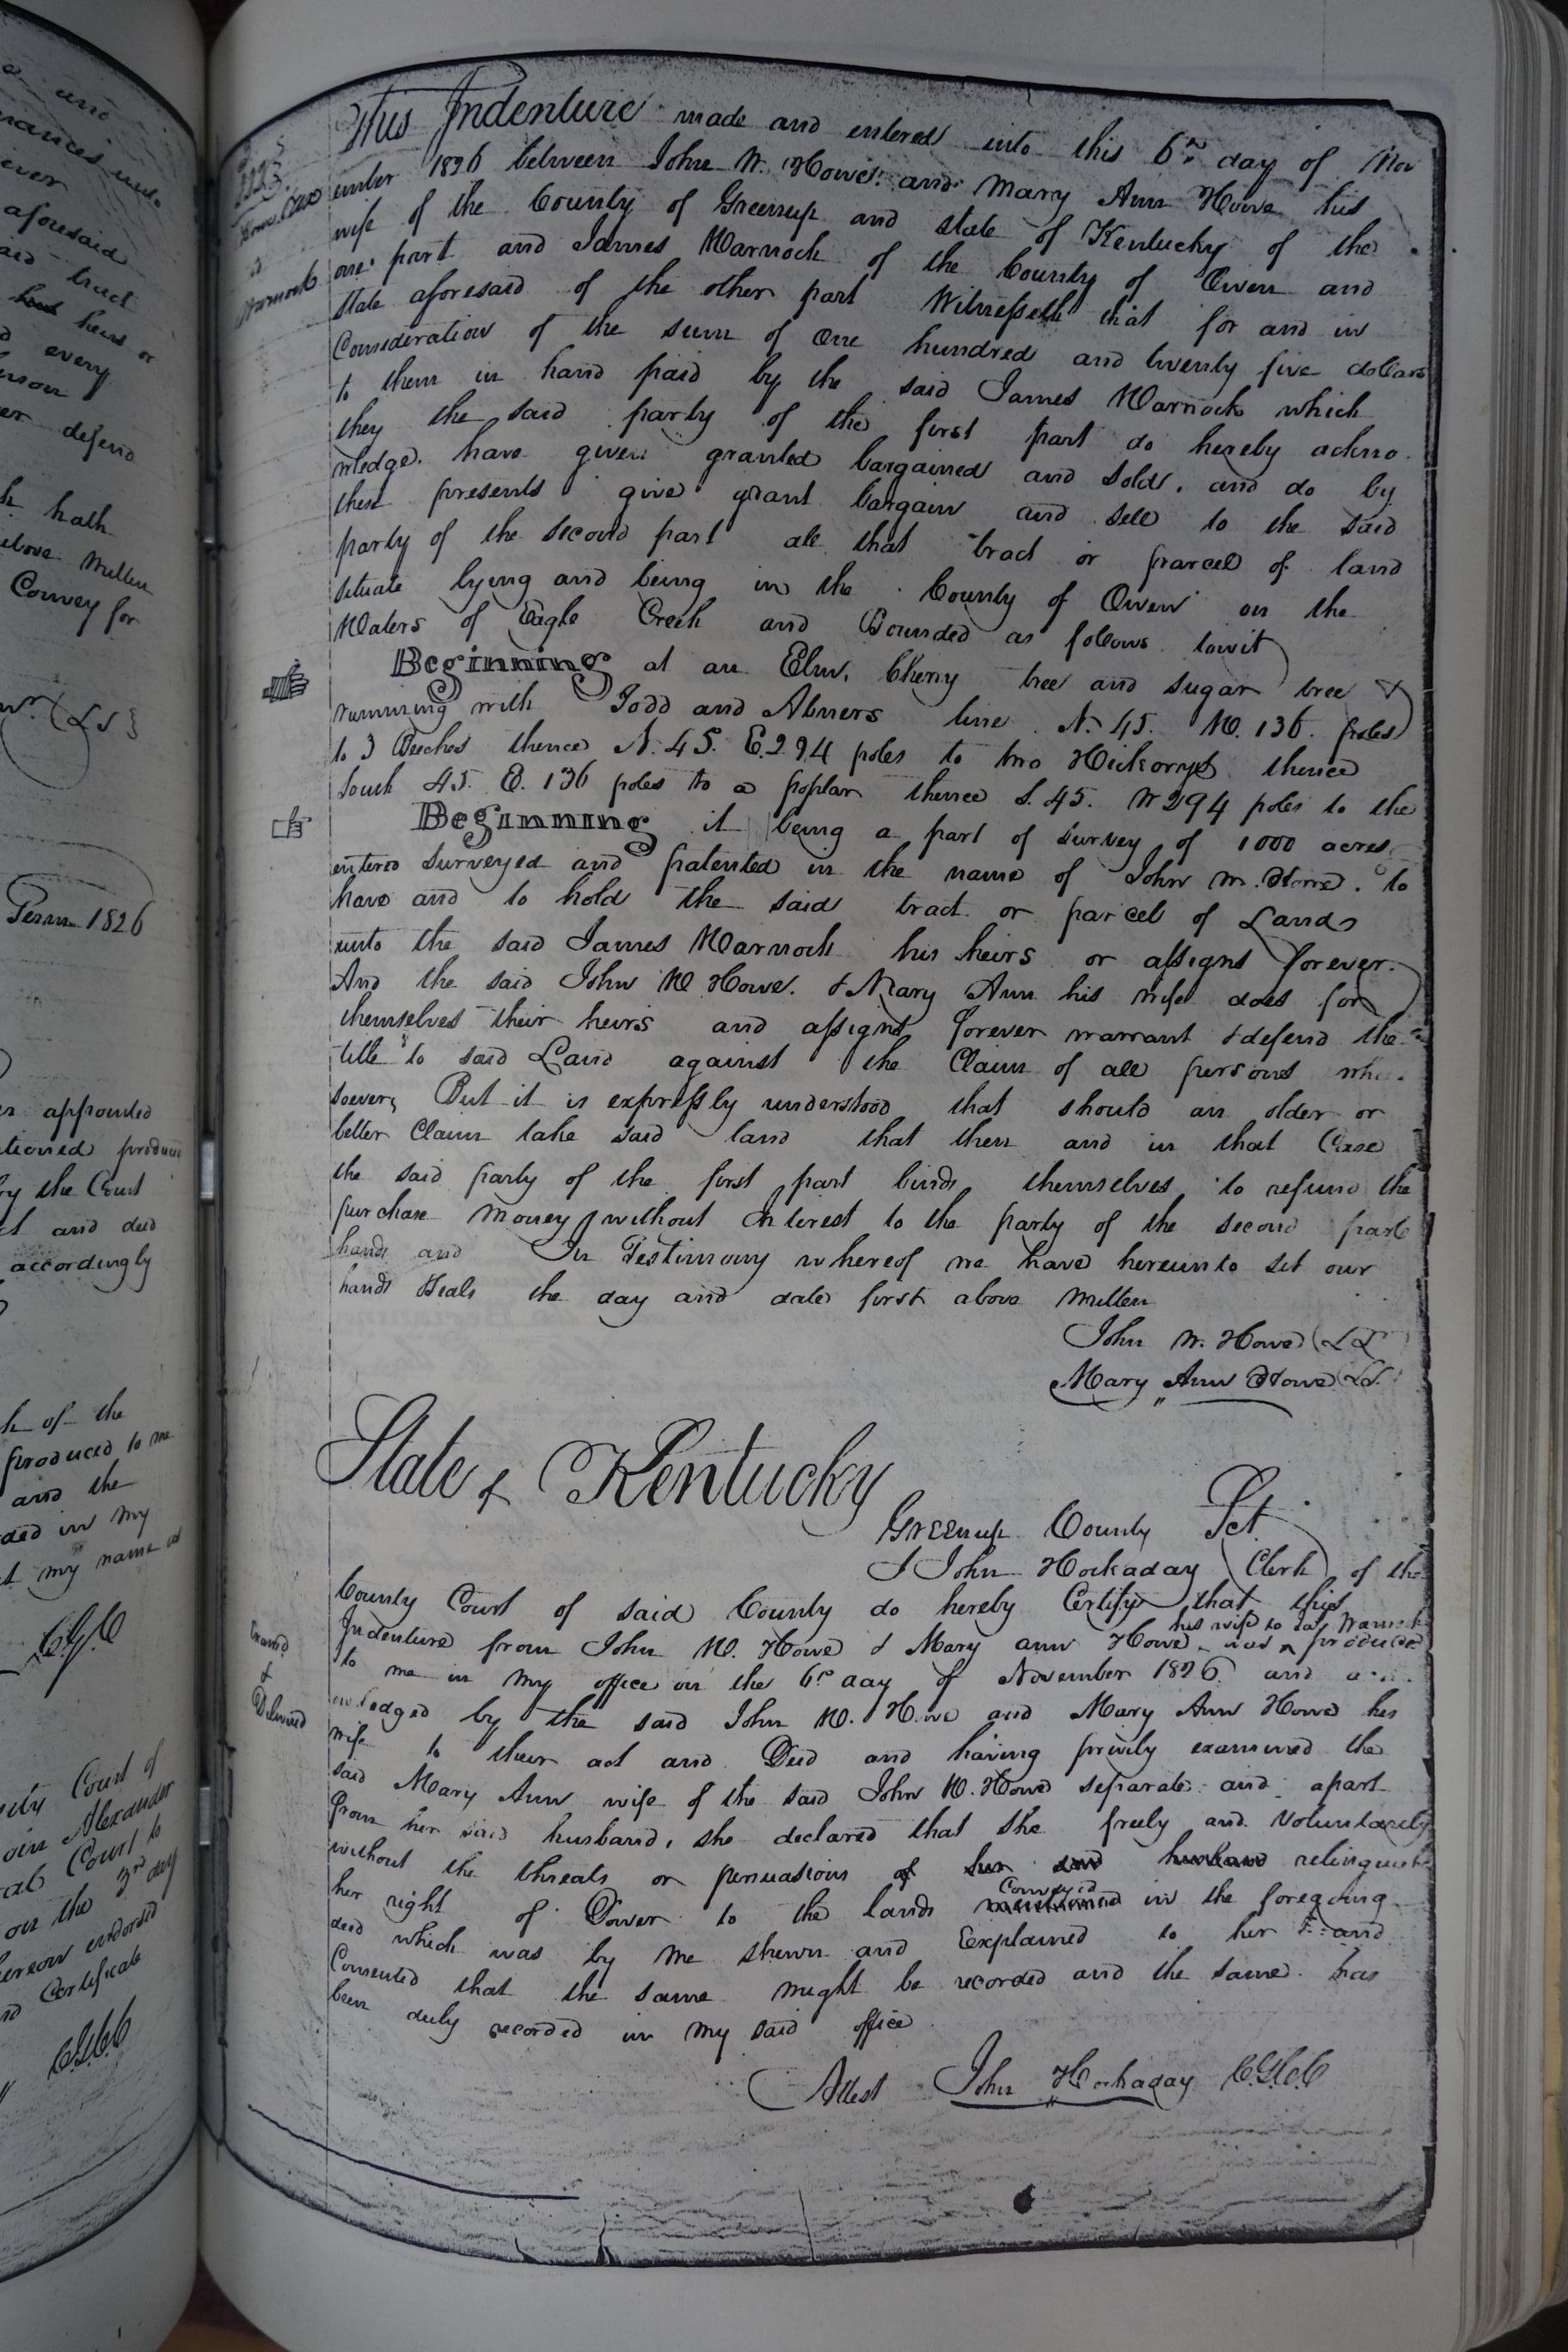 This Indenture made and entered into this 6th day of Nov
ember 1826 between John W. Howe. and Mary Ann Howe his
wife of the County of Greenup and state of Kentucky of the
one part and James Warnock of the County of Owen and
state aforesaid of the other part Witnesseth that for and in
Consideration of the sum of One hundred and twenty five dollars
to them in hand paid by the said James Warnock which
they the said party of the first part do hereby ackno
wledge. have given granted bargained and sold. and do by
these presents give grant bargain and sell to the said
party of the second part all that tract or parcel of land
situate lying and being in the County of Owen on the
Waters of Eagle Creek and Bounded as follows towit
Beginning at an Elm, Cherry tree and sugar tree &
running with Todd and Abners line N. 45. W. 136. poles
to 3 Beeches thence N. 45. E. 294 poles to two Hickorys thence
South 45. E. 136 poles to a poplar thence S. 45. W 294 poles to the
Beginning it being a part of survey of 1000 acres
entered surveyed and patented in the name of John W. Howe. to
have and to hold the said tract or parcel of Land
unto the said James Warnock his heirs or assigns forever.
And the said John W Howe. & Mary Ann his wife does for
themselves their heirs and assigns forever warrant & defend the
title to said Land against the Claim of all persons who
soever, But it is expressly understood that should an older or
better Claim take said land that then and in that Case
the said party of the first part binds themselves to refund the
purchase money without Interest to the party of the second part
hands and In Testimony whereof we have hereunto set our
hands Seals the day and date first above written
John W. Howe (LS
Mary Ann Howe (LS.
State of Kentucky
Greenup County Sct.
I John Hockaday Clerk of the
County Court of said County do hereby Certify that this
Indenture from John W. Howe & Mary ann Howe his wife to Warnock was produced
to me in my office on the 6th day of November 1826 and
wledged by the said John W. Howe and Mary Ann Howe his
wife to their act and Deed and having privily examined the
said Mary Ann wife of the said John W. Howe separate and apart
from her said husband, she declared that she freely and Voluntarily
without the threats or persuasions of her said husband relinquish
her right of Dower to the lands mentioned Conveyed in the foregoing
deed which was by me shewn and Explained to her and
Consented that the same might be recorded and the same has
been duly recorded in my said office
Attest John Hockaday C.G.C.C
Warnock
Exand
&
Delivered
aforesaid
tract
heirs or
every
defend
hath
above written
Convey for
(LS}
Term 1826
appointed
produce
by the Court
and deed
accordingly
of the
produced to me
and the
in my
my name
C.G.C
Court of
Alexander
Court to
on the 3rd day
hereon endorsed
Certificate
C.G.C.C